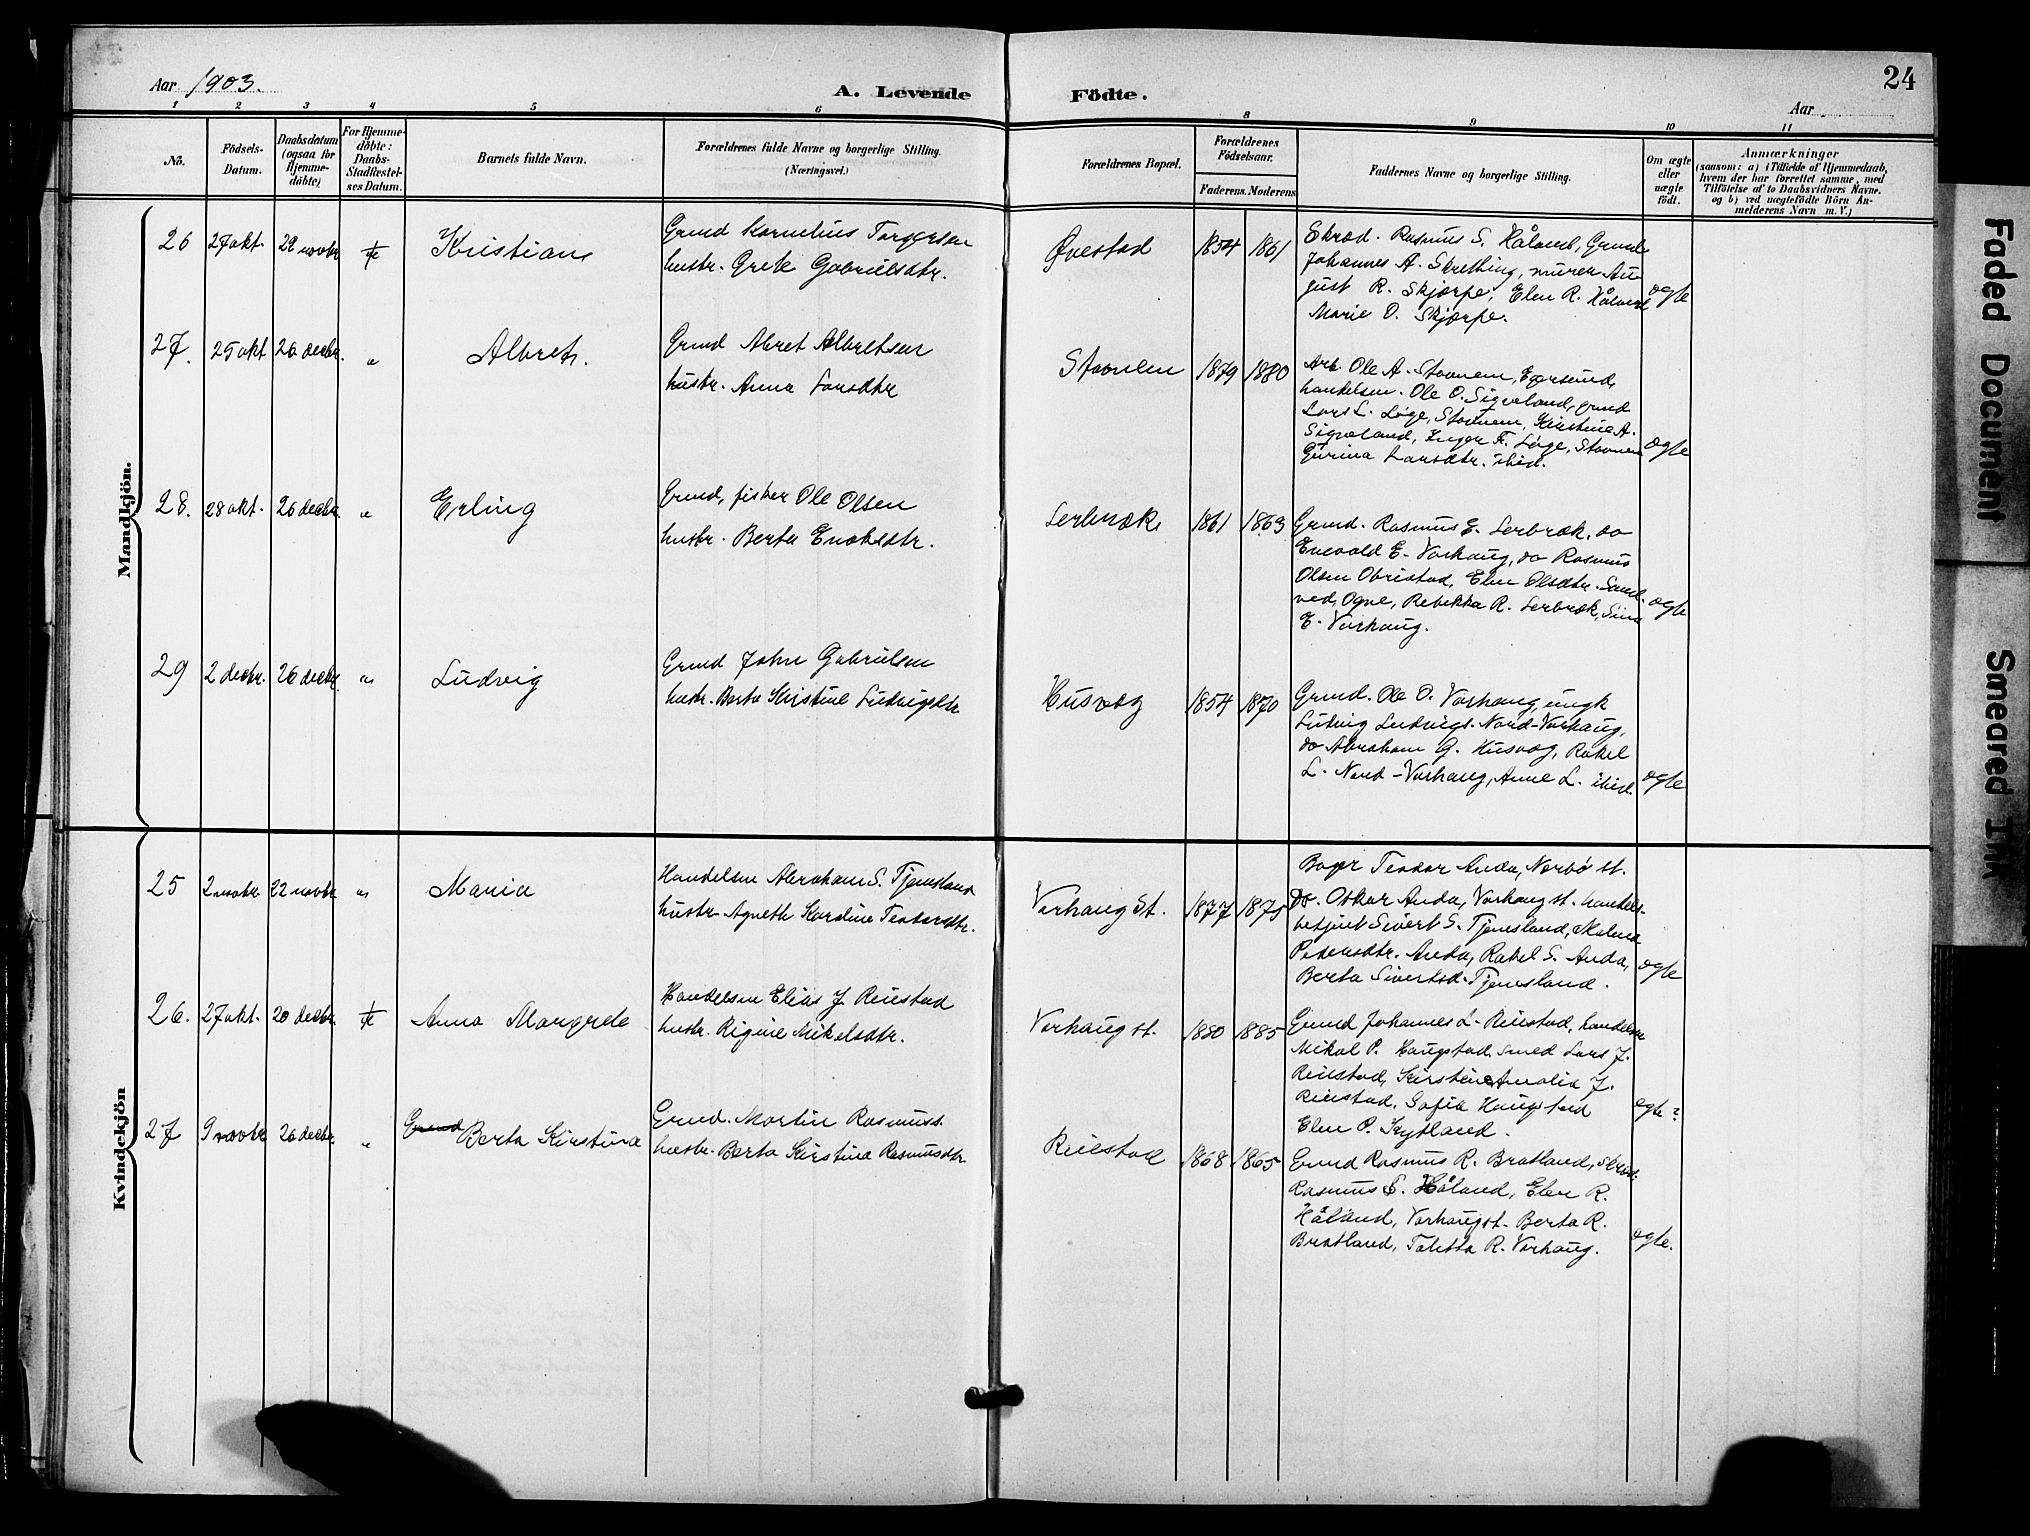 Aar 1903.
A. Levende Födte.
Aar
24
1 2 3 4 5 6 8 9 10 11
No.
Födsels-Datum.
Daabsdatum (ogsaa for Hjemme-döbte)
For Hjemme-döbte: Daabs-Stadfæstel-ses Datum.
Barnets fulde Navn.
Forældrenes fulde Navne og borgerlige Stilling. (Næringsvei.)
Forældrenes Bopæl.
Forældrenes Födselsaar.
Faderens. Moderens
Faddernes Navne og borgerlige Stilling.
Om ægte eller uægte födt.
Anmærkninger
(saasom: a) i Tilfælde af Hjemmedaab,
hvem der har forrettet samme, med
Tilföielse af to Daabsvidners Navne.
og b) ved uægtefödte Börn An-
melderens Navn m. V.)
Mandkjön.
26 27 okt. 22 novbr Kristian
Grmd Kornelius Torgersen
hustr. Grete Gabrielsdtr.
Øvestad 1854 1861
Skræd. Rasmus S. Håland, Grmd
Johannes A. Skretting, murer Au-
gust R. Skjærpe, Elen R. Håland
Marie O. Skjærpe.
ægte
27. 25 okt 26 decbr. " Albret.
Grmd Abret Albretsen
hustr. Anna Larsdtr
Stavnem 1879 1880
Arb. Ole A. Stavnem, Egersund,
handelsm. Ole O. Sigveland, grmd
Lars L. Løge, Stavnem, Kirstine A.
Sigveland, Inger F. Løge, Stavnem
Gurina Larsdtr. ibid.
ægte
28. 28 okt. 26 decbr. " Erling
Grmd, fisker Ole Olsen
hustr. Berta Enoksdtr.
Lerbræk 1861 1863
Grmd. Rasmus E. Lerbræk, do
Enevald E. Varhaug, do Rasmus
Olsen Obrestad, Elen Olsdtr. Sand-
ved, Ogne, Rebekka R. Lerbræk, Sina
E. Varhaug.
ægte
29 2 decbr. 26 decbr. " Ludvig
Grmd John Gabrielsen
hustr. Berta Kristine Ludvigsdtr
Husvæg 1854 1870
Grmd. Ole O. Varhaug, ungk
Ludvig Ludvigs. Nord-Varhaug,
do Abraham G. Husvæg, Rakel
L. Nord-Varhaug, Anne L. ibid.
ægte
Kvindekjön
25 2 novbr. 22 novbr " Maria
Handelsm Abraham S. Tjemsland
hustr. Agnethe Kardine Teodorsdtr.
Varhaug St. 1877 1875
Bager Teodor Anda, Nærbø st.
do. Oskar Anda, Varhaug st. handels-
betjent Sivert S. Tjemsland, Malena
Pedersdtr. Anda, Rakel S. Anda,
Berta Sivertsd. Tjemsland.
ægte
26. 27 okt. 20 decbr. Anna Margrete
Handelsm Elias J Reiestad
hustr. Rigine Mikalsdtr.
Varhaug st. 1880 1885
Grmd Johannes L. Reiestad, handelsm
Mikal P. Haugstad, smed Lars J.
Reiestad, Kirstine Amalia J.
Reiestad, Sofie Haugstad
Elen P. Kytland.
ægte?
27 9 novbr 26 decbr. " Grmd Berta Kirstina
Grmd. Martin Rasmuss.
hustr. Berta Kirstina Rasmusdtr
Reiestad 1868 1865
Grmd Rasmus R. Bratland, skræd.
Rasmus S. Håland, Elen R.
Håland, Varhaug st. Berta R.
Bratland, Taletta R. Varhaug.
ægte.
Faded Document
Smeared Ink